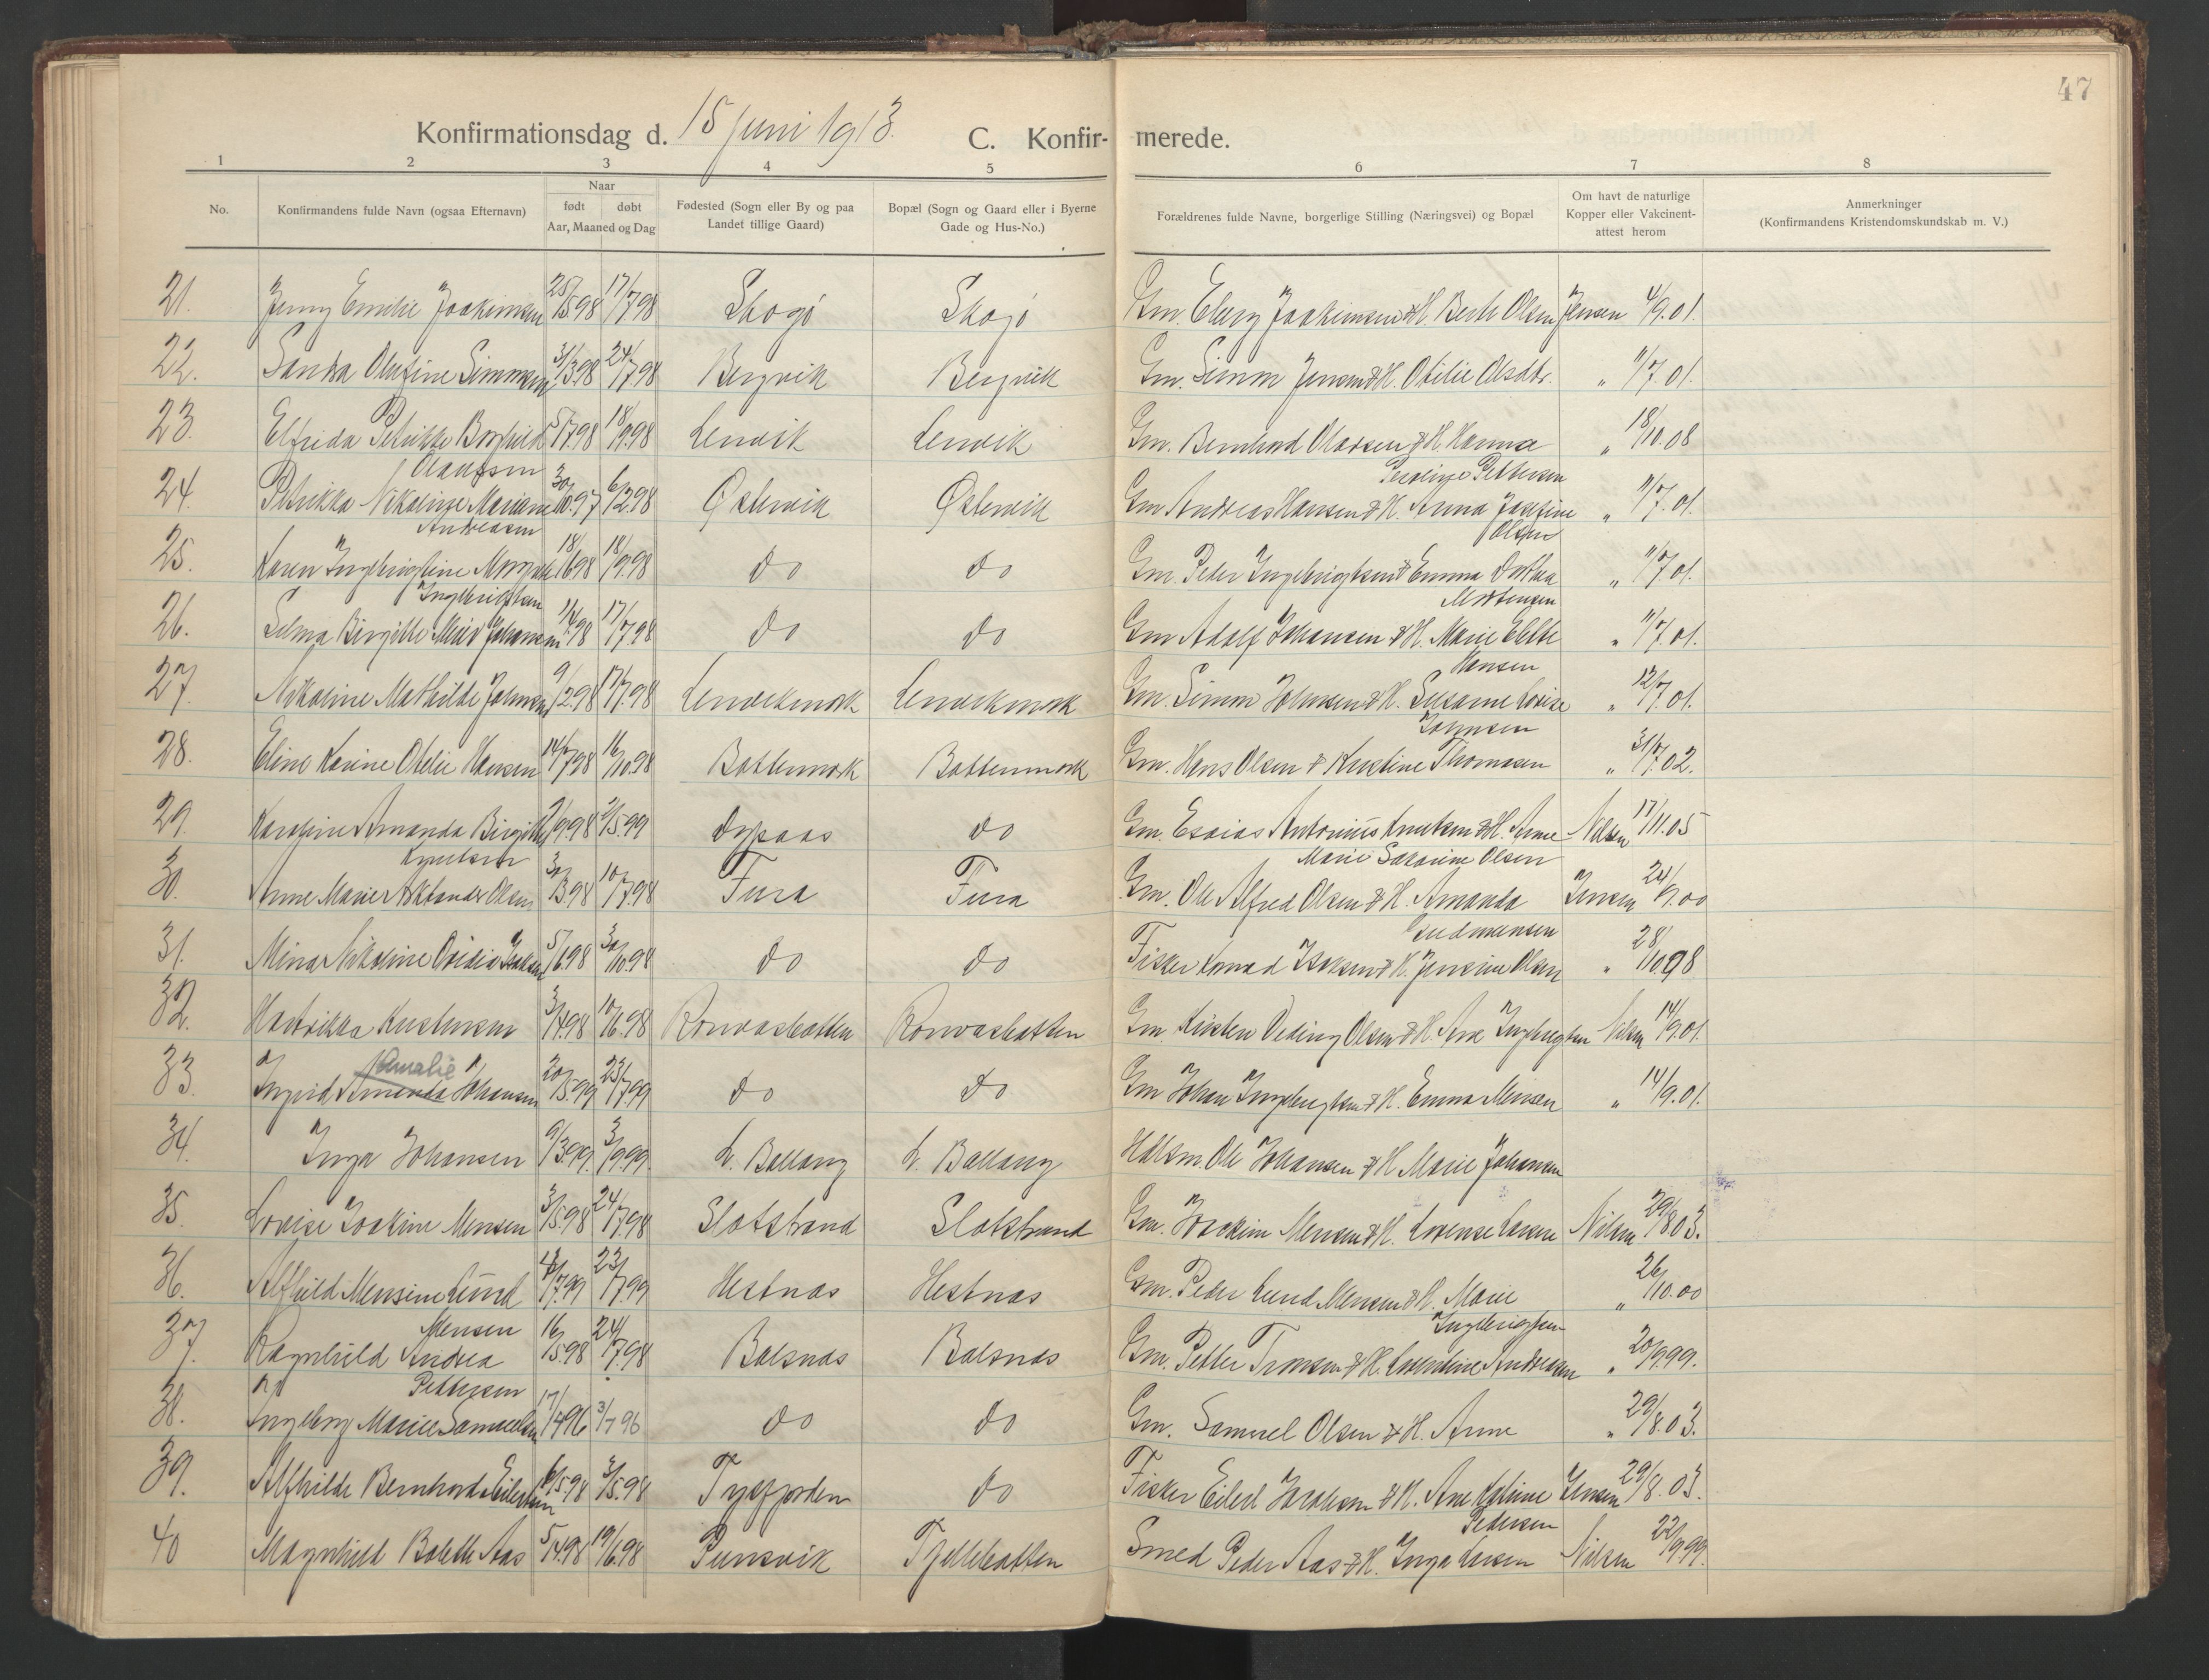 47
Konfirmationsdag d. 15 Juni 1913. C. Konfir- merede.
1 2 3 4 5 6 7 8
No. Konfirmandens fulde Navn (ogsaa Efternavn) Naar født døbt Aar, Maaned og Dag Fødested (Sogn eller By og paa Landet tillige Gaard) Bopæl (Sogn og Gaard eller i Byerne Gade og Hus-No.) Forældrenes fulde Navne, borgerlige Stilling (Næringsvei) og Bopæl Om havt de naturlige Kopper eller Vakcinent- attest herom Anmerkninger (Konfirmandens Kristendomskundskab m. V.)
21. Jenny Emilie Joakimsen 25/5 98 17/7 98 Skogö Skogö Gm. Joakimsen & H. Olsen Jensen 4/9.01.
22. Olufine Simonsen 31/3 98 24/7 98 Bergvik Bergvik Gm. Simon Jensen & H. Otilie Olsdtr. " 11/7.01.
23. Elfrida Petrikke Borghild 5/7 98 18/9.98 Lenvik Lenvik Gm. Bernhard Olavsen & H. Hanna " 18/10.08
Pettersen
24. Petrikka Nikoline Mariane 30/10.97 6/2 98 Østervik Østervik Gm Andreas Hansen & H. Anna Josefine " 11/7.01.
Andreasen Olsen
25. Karen 18/6 98 18/9.98 do do Gm. Peder Ingebrigtsen & Emma Dorthea " 11/7.01.
Ingebrigtsen Mortensen
26. Selma Birgitte Marie Johansen 17/7.98 do do Gm Adolf Johansen & H. Marie " 11/7.01.
Hansen
27. Nikoline Mathilde Johnsen 9/2.98 17/7.98 Lenvikmark Lenvikmark Gm. Simon Johnsen & H. Susanne Lovise " 12/7.01.
Johnsen
28. Eline Karine Otelie Hansen 14/7 98 16/10.98 Bottenmark Bottenmark Gm. Hans Olsen & Kristine Thomasen " 31/7.02.
29. Karoline Amanda Birgitte 2/9.98 2/5.99 do Gm. Esaias Antonius Knutsen & H. Anne Nilsen 17/11.05
Knutsen Marie Olsen
30. Anne Marie Olsen 30/3.98 10/7.98 Fura Fura Gm. Ole Alfred Olsen & H. Amanda Jensen 24/9.00
Gudmunsen
31. Nikoline Ovidia Isaksen 5/6.98 30/10.98 do do Fisker Konrad Isaksen & H. Jensine Olsen " 28/10 98
32. Kristensen 3/4 98 10/6.98 Ronvasbotten Ronvasbotten Gm. Olsen & H. Ane Ingebrigtsen Nilsen 14/9.01.
Amalie
33. Ingrid Amanda Johansen 20/5.99 23/7.99 do do Gm Johan Ingebrigtsen & H. Emma Mensen " 14/9.01.
34. Inga Johansen 9/3.99. 3/9.99. L. Ballang L. Ballang Ole Johansen & H Marie Johansen
35. Lovise Joakine Mensen 3/5.98 24/7.98 Slotstrand Slotstrand Gm. Joackim Mensen & H. Lorense Larsen Nilsen 29/8 03.
36. Alfhild Mensine Lund 23/7.99 Hestnas Hestnas Gm. Peder Lund Mensen & H. Marie " 26/10.00
Mensen Ingebrigtsen
37. Ragnhild Andrea 16/5.98 24/7.98 Balsnas Balsnas Gm. Petter Tronsen & H. Andreasen " 20/9.99.
Pettersen
38. Ingeborg Marie Samuelsen 17/4 96 3/7 96 do do Gm. Samuel Olsen & H. Anne " 29/8.03.
39. Alfhilde Eilertsen 6/5.98 3/5.98 Tysfjorden do Fisker Eilert & H. Ane Katrine Jensen 29/8.03.
Pedersen
40 Magnhild Bolette Aas 5/4.98 19/6.98 Punsvik Tjelbotten Smed Peder Aas & H. Inga Larsen Nilsen 22/9.99.